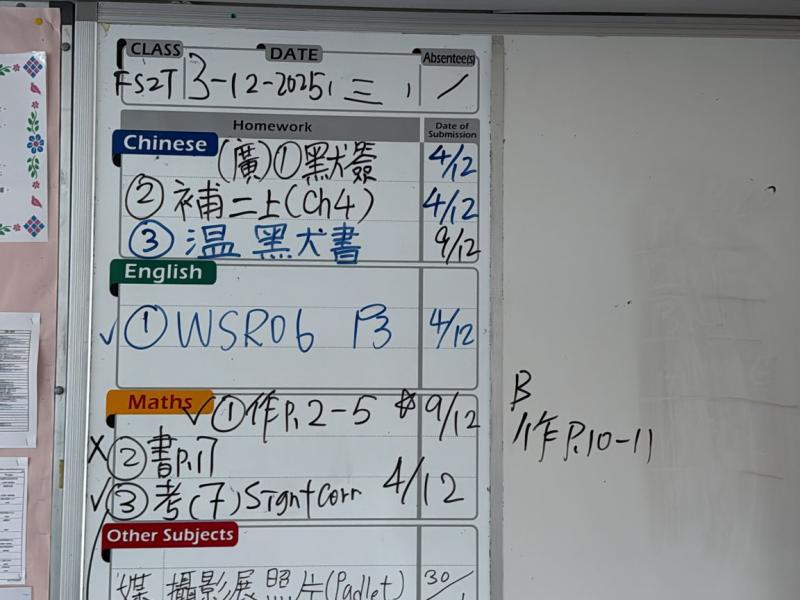 CLASS DATE Absentee(s)
FS2T 3-12-2025, 三, /
Homework Date of Submission
Chinese (廣)①默犬簽 4/12
② 補二上(Ch4) 4/12
③ 溫黑犬書 9/12
English
✓ ① WSR06 P3 4/12
Maths ✓ ①作P.2-5 ☆ 9/12
B
作P.10-11
X ②書P.17
✓ ③考(7)Sign+Corr 4/12
Other Subjects
媒 攝影展照片(Padlet) 30/